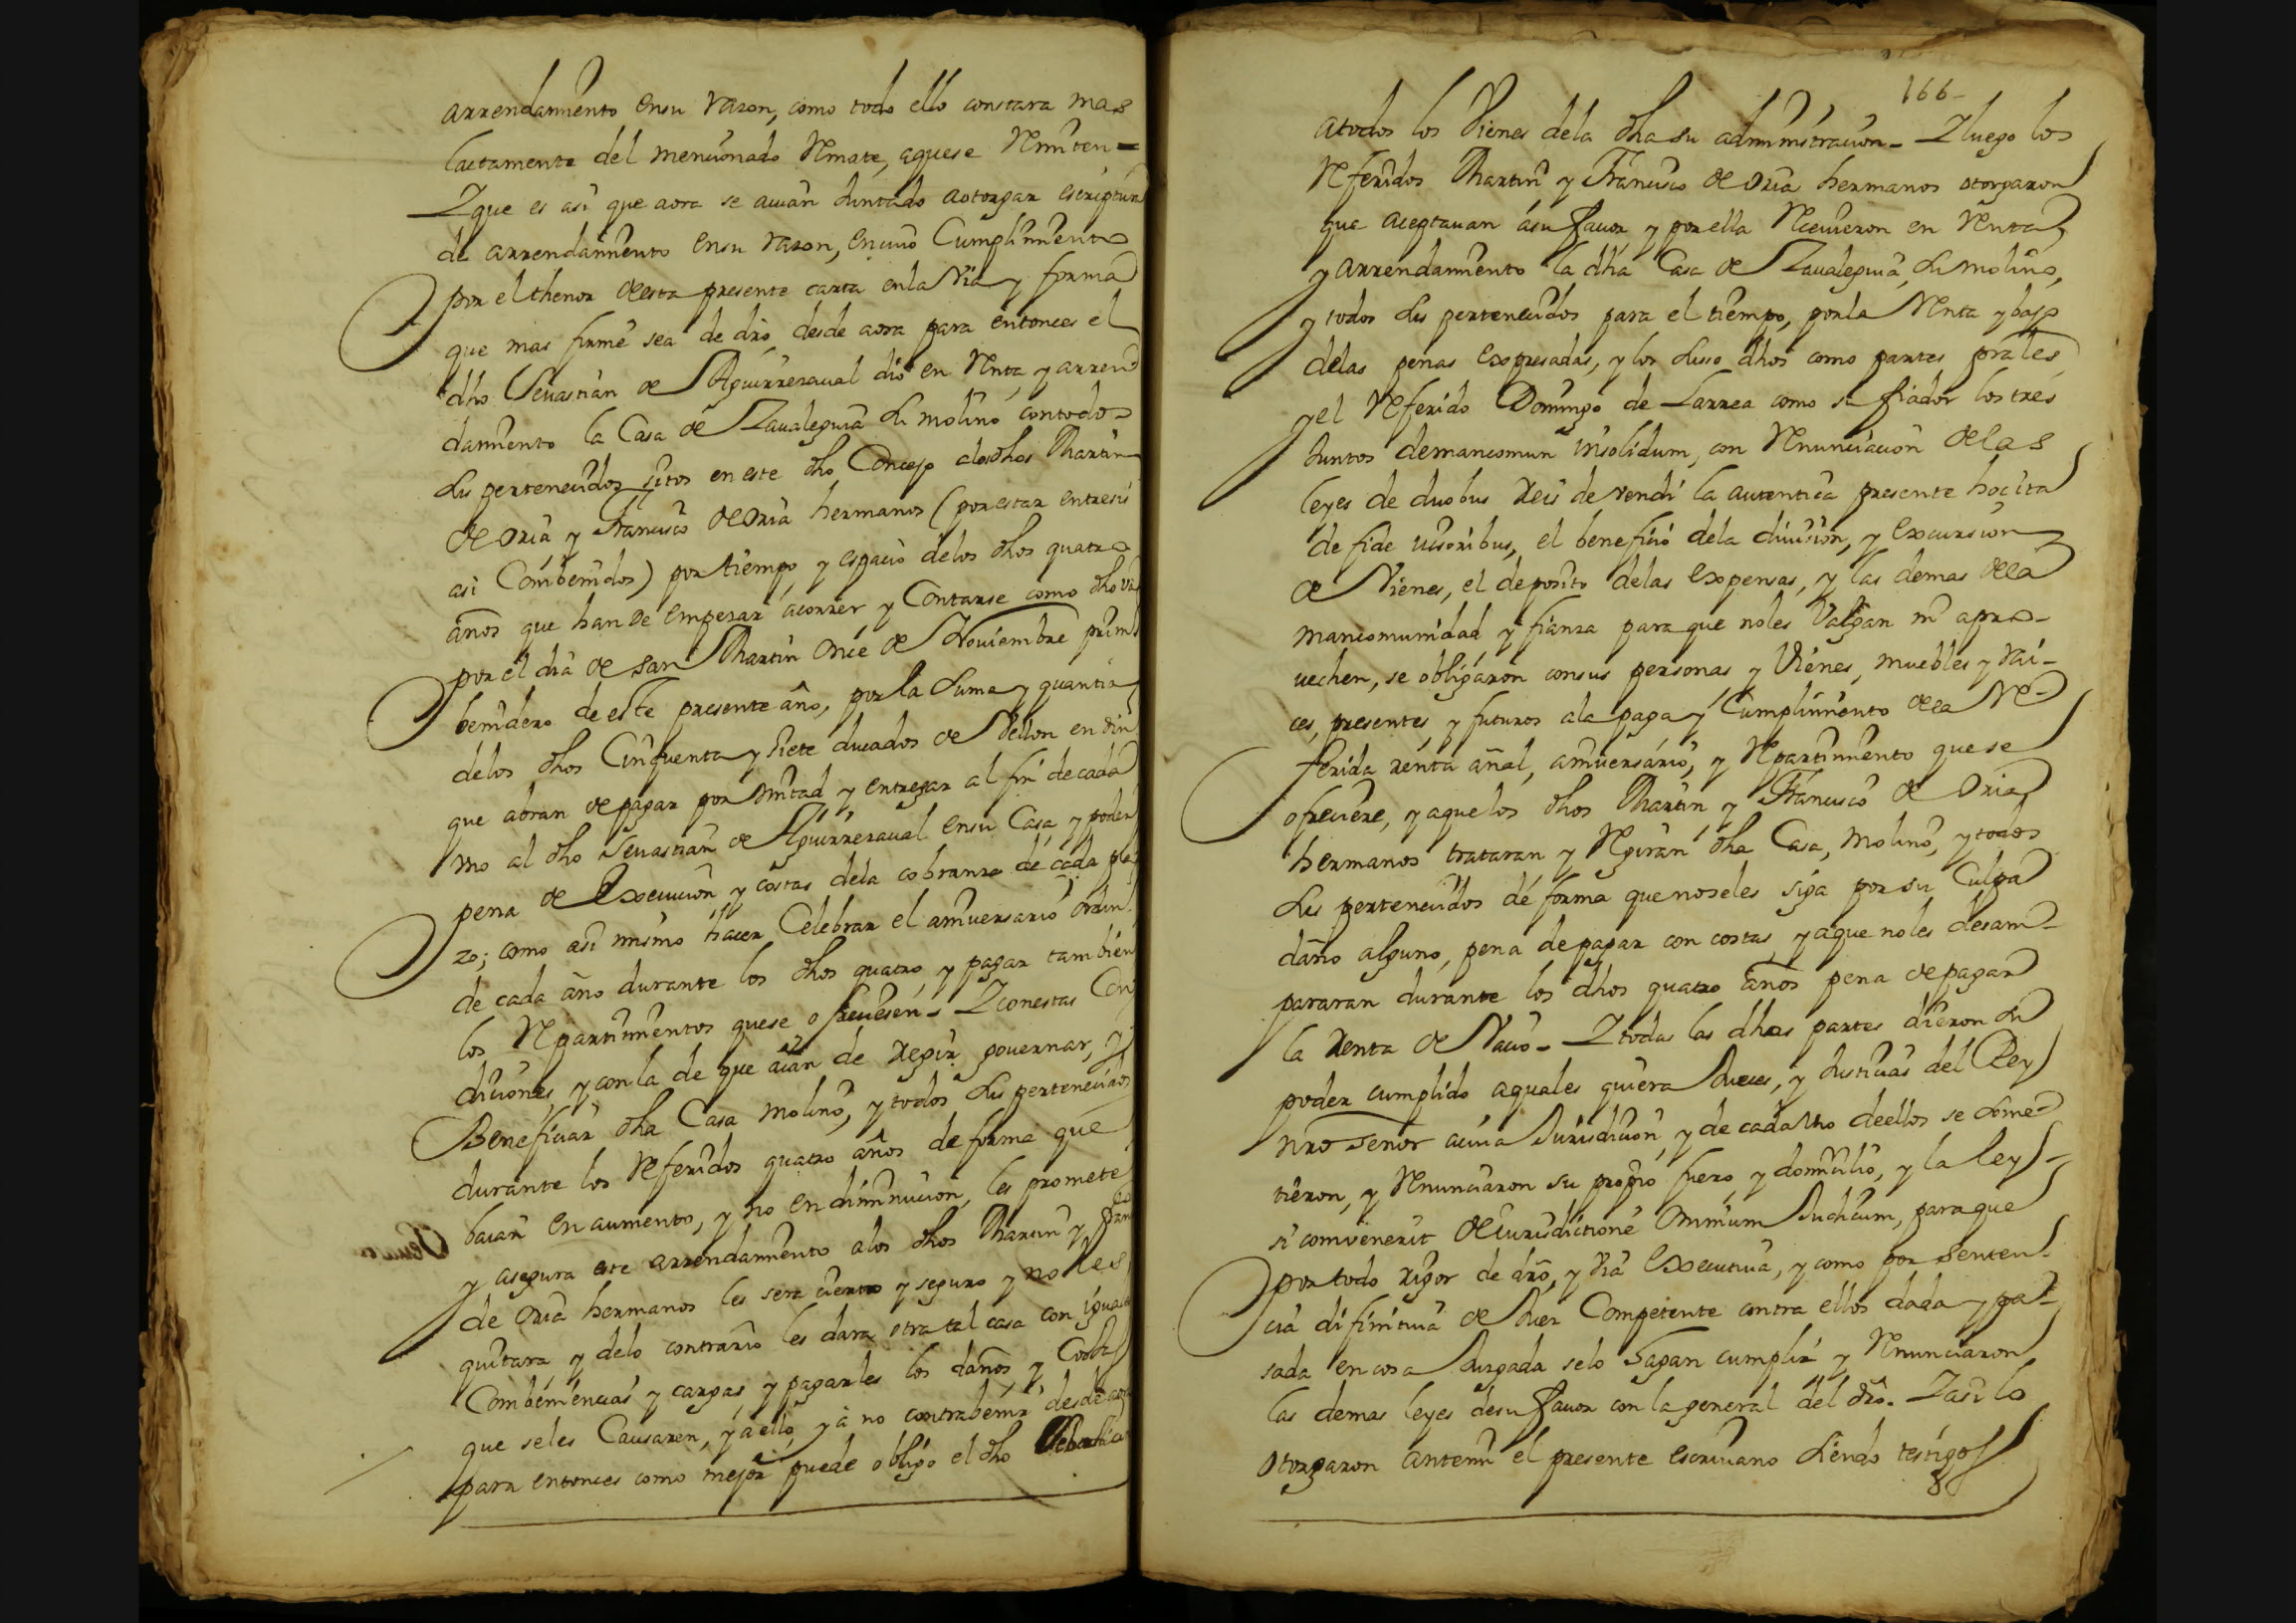 arrendamiento ensu razon, como todo ello constara mas
lactamente del mencionado Remate, aquese Remiten =
Y que es asi que aora se auian Juntado aotorgar escriptura
de arrendamiento ensu razon, encuio Cumplimiento
por el thenor de esta presente carta enla Via y forma
que mas firme sea de dro, desde aora para entonces el
dho Seuastian de Aguirrezaual dio en Renta, y arren
damiento la Casa de Zaualeguia su molino contodos
sus pertenecidos sitos en este dho Concejo alos dhos Martin
de Oria y Francisco de Oria hermanos (por estar entresi
asi Combenidos) por tiempo y espacio delos dhos quatro
años que han de empezar acorrer y Contarse como dho va
por el dia de San Martin Once de Nouiembre primo
benidero de este presente año, por la suma y quantia
delos dhos Cinquenta y siete ducados de Vellon en din
que abran de pagar por mitad y entregar al fin de cada
vno al dho Seuastian de Aguirrezaual ensu Casa, y poder
pena de Execucion y costas dela cobranza de cada pla
zo; como asi mismo hacer Celebrar el aniuersario ordin
de cada año durante los dhos quatro, y pagar tambien
los Repartimientos quese ofrecieren - Y conestas Con
diciones, y con la de que aian de regir gouernar, y
Beneficiar dha Casa molino, y todos sus pertenecidos
durante los Referidos quatro años de forma que
baian en aumento, y no en diminucion, les promete
y asegura este arrendamiento alos dhos Martin y Fran
de Oria hermanos les sera cierto y seguro y no les
quitara, y delo contrario les dara otra tal casa con igual
Combeniencias y cargas, y pagarles los daños, y Costas
que seles Causaren, y a ello, y à no contrabenir desde aora
para entonces como mejor puede obligo el dho Sebastian
166-
atodos los Vienes dela dha su administracion - Y luego los
Referidos Martin y Francisco de Oria hermanos otorgaron
que aceptauan asu fauor y por ella Receuieron en Renta
y arrendamiento la dha Casa de Zaualeguia, su molino,
y todos sus pertenecidos para el tiempo, porla Renta y bajo
delas penas Expresadas, y los suso dhos como partes prales
y el Referido Domingo de Larrea como su fiador los tres
Juntos demancomun insolidum, con Renunciacion de las
leyes de duobus Reis devendi la autentica presente hocita
de fide iusoribus, el beneficio dela diuision, y Excursion
de Vienes, el deposito delas Expensas, y las demas de la
mancomunidad y fianza para que noles Valgan ni apro-
uechen, se obligaron consus personas y Vienes, muebles y rai-
ces, presentes, y futuros ala paga y Cumplimiento de la Re
ferida renta añal, aniuersario, y Repartimiento que se
ofreciere, y aquelos dhos Martin y Francisco de Oria
hermanos trataran y Regiran dha Casa, Molino, y todos
sus pertenecidos de forma que noseles siga por su Culpa
daño alguno, pena de pagar con costas, y aque noles desam-
pararan durante los dhos quatro años pena de pagar
la renta de Vacio - Y todas las dhas partes dieron su
poder cumplido aquales quiera Jueces, y Justicias del Rey
nro señor acuia Jurisdicion, y de cada vno de ellos se some
tieron, y Renunciaron su propio fuero, y domicilio, y la ley
si combenerit de iurisdictione Omnium Judicum, para que
por todo rigor de dro, y Via Executiua, y como por senten
cia difinitiua de Juez Competente contra ellos dada y pa-
sada en cosa Juzgada selo hagan cumplir y Renunciaron
las demas leyes desu fauor con la general del dro. Y asi lo
otorgaron antemi el presente escriuano siendo testigos